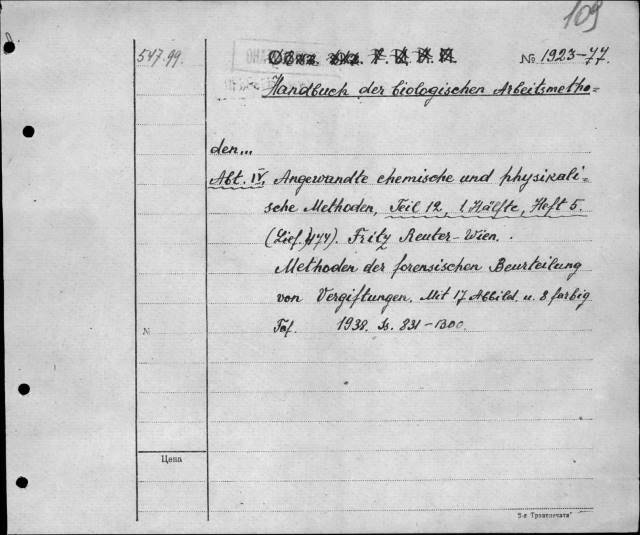 109
547.99.
№ 1923-77.
Handbuch der biologischen Arbeitsmetho=
den...
Abt. IV. Angewandte chemische und physikali=
sche Methoden, Teil 12, 1. Hälfte, Heft 5.
(Lief. 477). Fritz Reuter-Wien.
Methoden der forensischen Beurteilung
von Vergiftungen. Mit 17 Abbild. u. 8 farbig
Taf. 1938. Ss. 831-1300.
№
Цена
"5-я Транспечати"